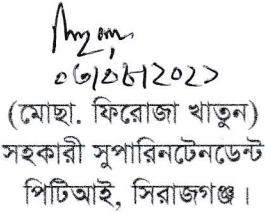 ০৩/০৮/২০২১
(মোছা. ফিরোজা খাতুন)
সহকারী সুপারিনটেনডেন্ট
পিটিআই, সিরাজগঞ্জ।